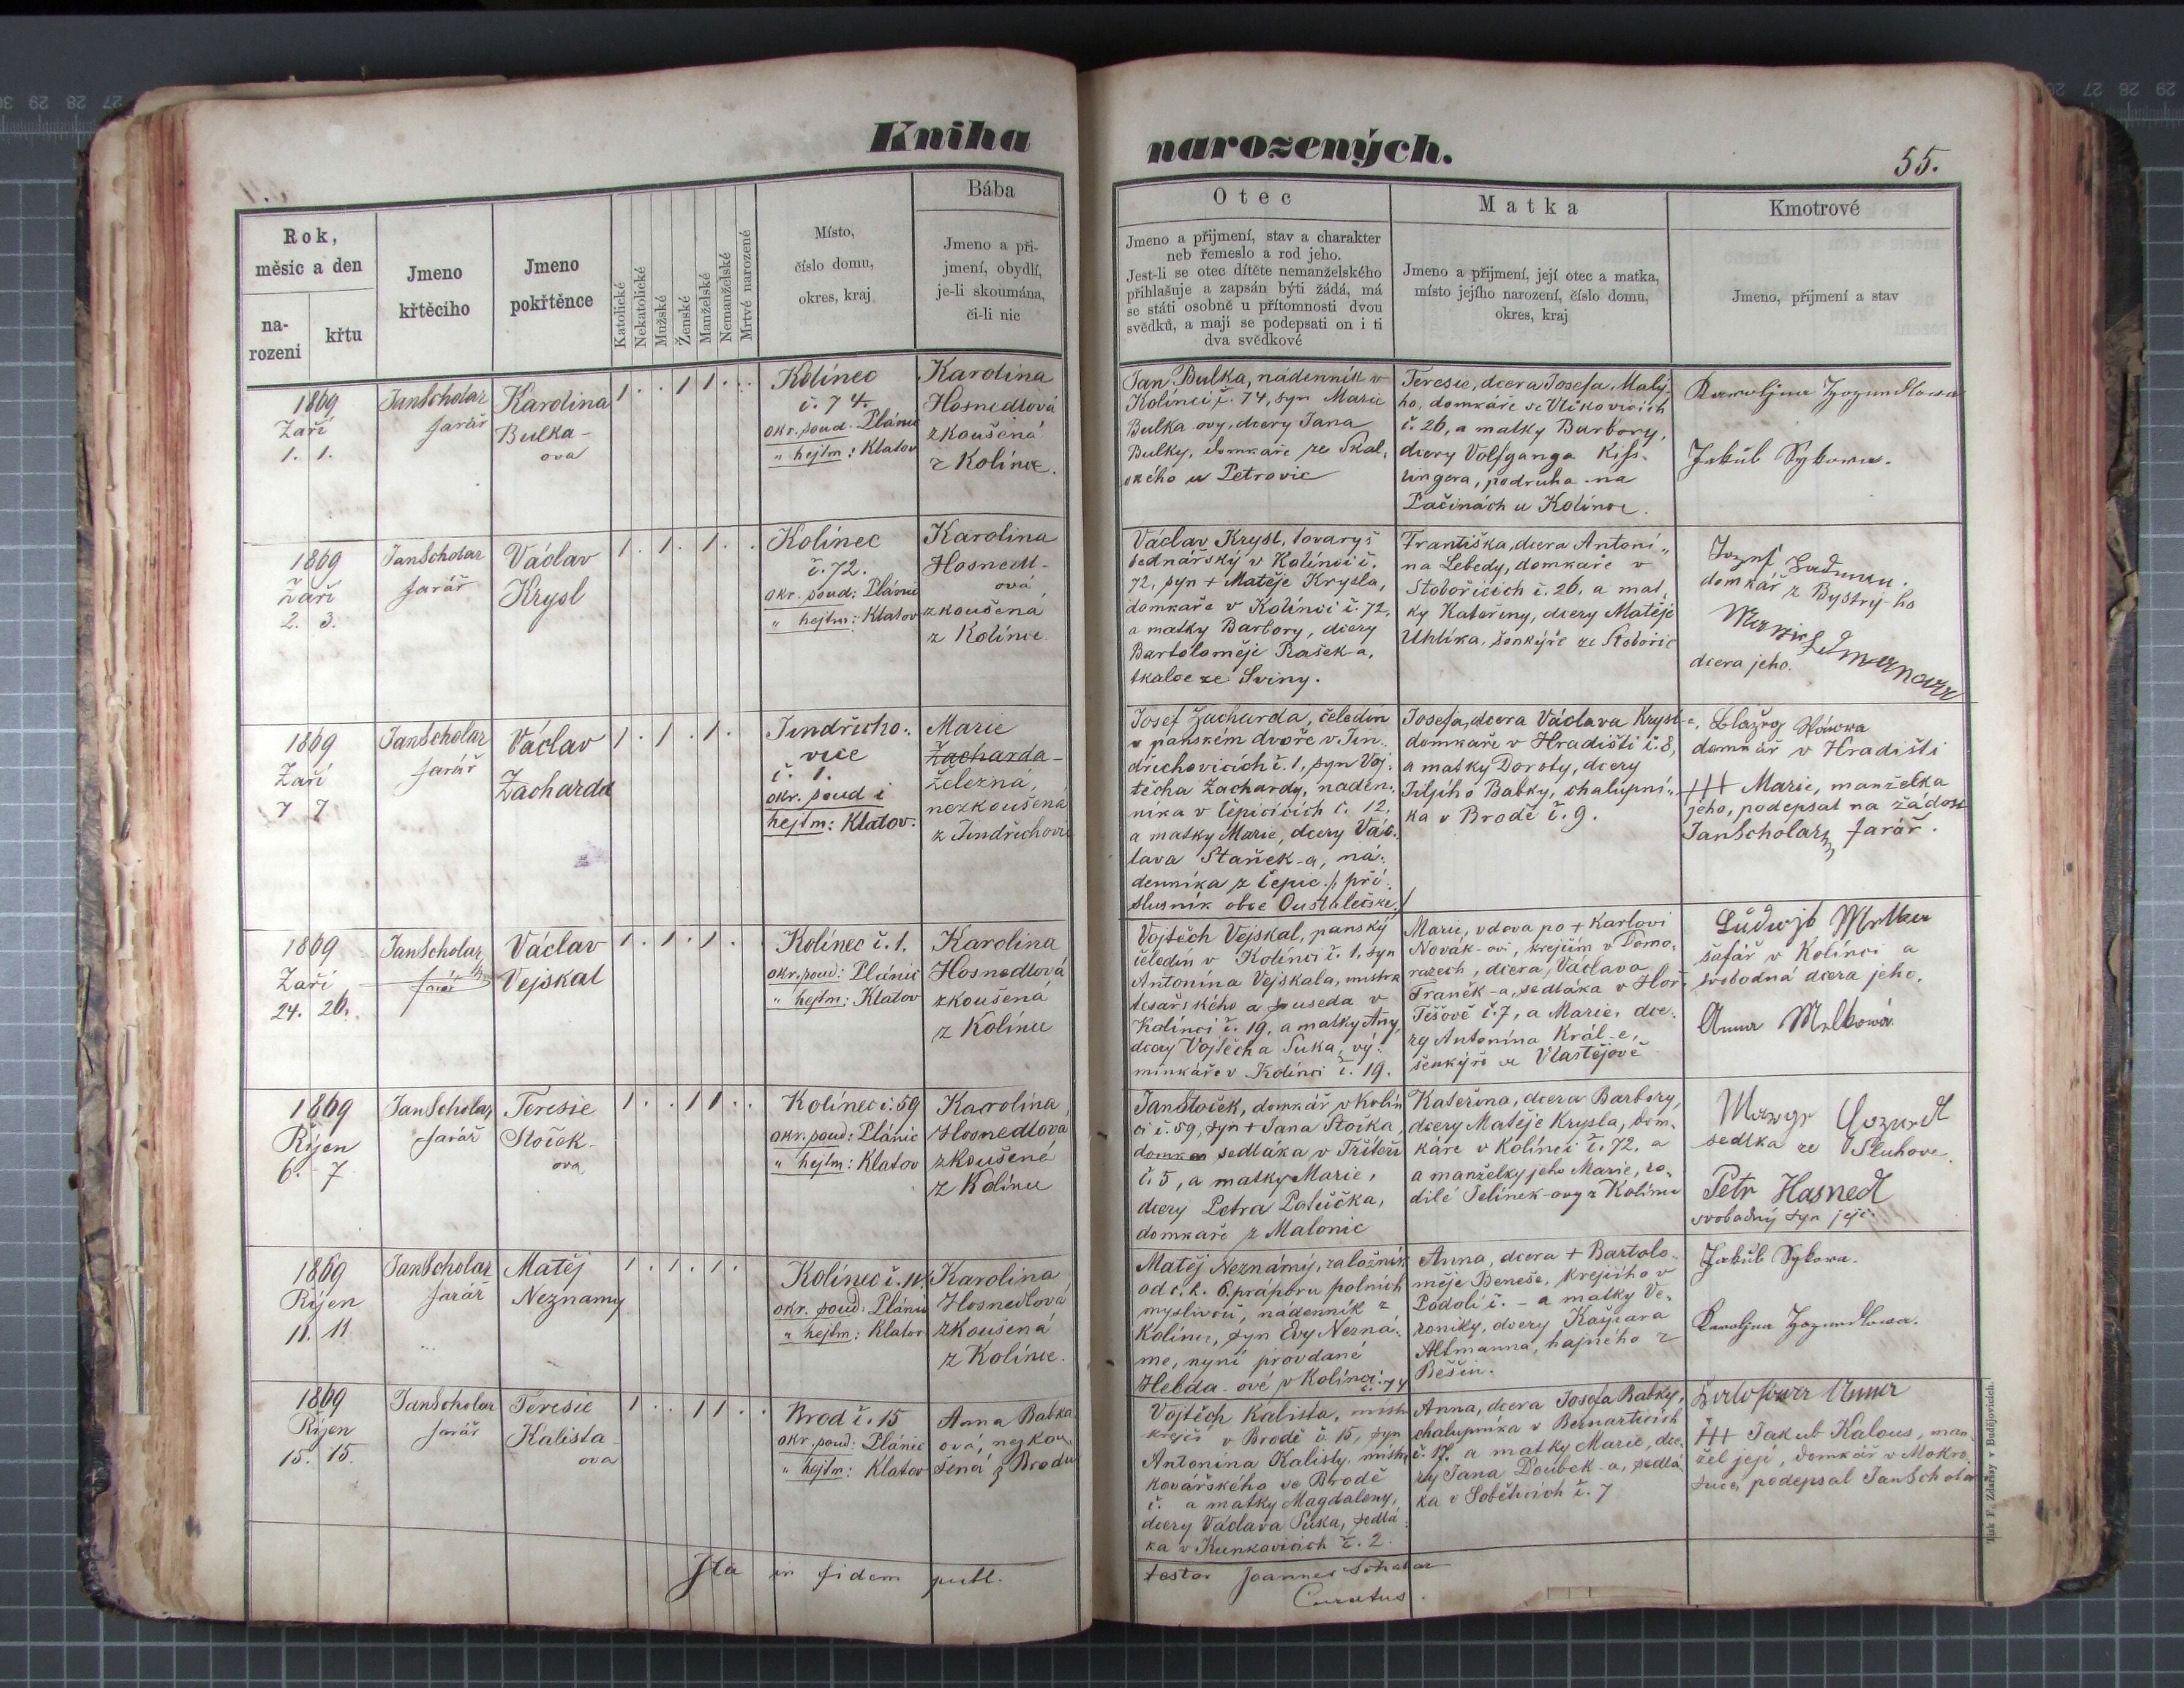 Kniha narozených.
55.
Rok,
měsic a den
na-
rozeni
křtu
Jmeno
křtěciho
Jmeno
pokřtěnce
Katolické
Nekatolické
Mužské
Ženské
Manželské
Nemanželské
Mrtvé narozené
Místo,
číslo domu,
okres, kraj
Bába
Jmeno a při-
jmení, obydlí,
je-li skoumána,
či-li nic
Otec
Jmeno a přijmení, stav a charakter
neb řemeslo a rod jeho.
Jest-li se otec dítěte nemanželského
přihlašuje a zapsán býti žádá, má
se státi osobně u přítomnosti dvou
svědků, a mají se podepsati on i ti
dva svědkové
Matka
Jmeno a přijmení, její otec a matka,
místo jejího narození, číslo domu,
okres, kraj
Kmotrové
Jmeno, přijmení a stav
1869
Září
1. 1.
Jan Scholar
farář
Karolina
Bulka-
ova
1 . . 1 1 . .
Kolínec
č. 74.
okr. soud: Plánic
" hejtm: Klatov
Karolina
Hosnedlová
zkoušená
z Kolínce.
Jan Bulka, nádenník v
Kolínci č. 74, syn Marie
Bulka-ovy, dcery Jana
Bulky, domkáře ze Skal-
ského u Petrovic
Teresie, dcera Josefa Malý-
ho, domkáře ve Vlčkovicích
č. 26, a matky Barbory,
dcery Volfganga Kiss-
lingera, podruha na
Pačinách u Kolince.
Jakub Sykora.
1869
Září
2. 3.
Jan Scholar
farář
Václav
Krysl
1 . 1 . 1 . .
Kolínec
č. 72.
okr. soud: Plánic
" hejtm: Klatov
Karolina
Hosnedl-
ová
zkoušená
z Kolínce.
Václav Krysl, tovaryš
bednářský v Kolínci č.
72, syn + Matěje Krysla,
domkáře v Kolínci č. 72,
a matky Barbory, dcery
Bartoloměje Rašek-a,
tkalce ze Sviny.
Františka, dcera Antoní-
na Lebedy, domkáře v
Stobořicích č. 26, a mat-
ky Kateřiny, dcery Matěje
Uhlíka, šenkýře ze Stobořic
Jozef
domkář z Bystrý-ho
dcera jeho.
1869
Září
7 7.
Jan Scholar
farář
Václav
Zacharda
1 . 1 . 1 .
Jindřicho-
vice
č. 1.
okr. soud i
hejtm: Klatov.
Marie
Zacharda-
železná,
nezkoušená
z Jindřichovic
Josef Zacharda, čeledín
v panském dvoře v Jin-
dřichovicích č. 1, syn Voj-
těcha Zachardy, náden-
níka v Čepicích č. 12,
a matky Marie, dcery Vác-
lava Staňek-a, ná-
denníka z Čepic /: pří-
slušník obce Oustalečské.
Josefa, dcera Václava Krysl-a,
domkáře v Hradišti č. 8,
a matky Doroty, dcery
Jiljího Babky, chalupní-
ka v Brodě č. 9.
Blažeg
domkář v Hradišti
+++ Marie, manželka
jeho, podepsal na žádost
Jan Scholar, farář.
1869
Září
24. 26.
Jan Scholar
farář
Václav
Vejskal
1 . 1 . 1 . .
Kolínec č. 1.
okr. soud: Plánic
" hejtm: Klatov
Karolina
Hosnedlová
zkoušená
z Kolínce
Vojtěch Vejskal, panský
čeledín v Kolínci č. 1, syn
Antonína Vejskala, mistra
tesařského a souseda v
Kolínci č. 19, a matky Any,
dcery Vojtěcha Suka, vý-
minkáře v Kolínci č. 19.
Marie, vdova po + Karlovi
Novák-ovi, krejčím v Domo-
razech, dcera Václava
Franěk-a, sedláka v Hoř.
Těšově č. 7, a Marie, dce-
ry Antonína Král-e,
šenkýře ve Vlastějově
Ludwjk
šafář v Kolínci a
svobodná dcera jeho.
Anna Melkowá
1869
Říjen
6. 7
Jan Scholar
farář
Teresie
Stoček-
ova
1 . . 1 1 . .
Kolínec č. 59
okr. soud: Plánic
" hejtm: Klatov
Karolina
Hosnedlová
zkoušená
z Kolínce
Jan Stoček, domkář v Kolín-
ci č. 59, syn + Jana Stočka,
domkáře sedláka v Třiteři
č. 5, a matky Marie,
dcery Petra Polučka,
domkáře z Malonic
Kateřina, dcera Barbory,
dcery Matěje Krysla, dom-
káře v Kolínci č. 72, a
a manželky jeho Marie, ro-
dilé Jelínek-ovy z Kolince
sedlka ze Sluhova.
Petr Hasnedl
svobodný syn její.
1869
Říjen
11. 11.
Jan Scholar
farář
Matěj
Neznámy
1 . 1 . 1 .
Kolínec č. 11.
okr. soud: Plánic
" hejtm: Klatov
Karolina
Hosnedlová
zkoušená
z Kolínce.
Matěj Neznámý, záložník
od c. k. 6. práporu polních
myslivců, nádenník z
Kolince, syn Evy Nezná-
me, nyní provdané
Helda-ové v Kolínci č. 74
Anna, dcera + Bartolo-
měje Beneše, krejčího v
Podolí č. – a matky Ve-
roniky, dcery Kašpara
Altmanna, hajného z
Běšin.
Jakub Sykora.
1869
Říjen
15. 15.
Jan Scholar
farář
Teresie
Kalista-
ova
1 . . 1 1 . .
Brod č. 15
okr. soud: Plánic
" hejtm: Klatov
Anna Babka-
ová, nezkou-
šená z Brodu
Vojtěch Kalista, mistr
krejčí v Brodě č. 15, syn
Antonína Kalisty, mistra
kovářského ve Brodě
č. a matky Magdaleny,
dcery Václava Suka, sedlá-
ka v Kunkovicích č. 2.
Anna, dcera Josefa Babky,
chalupníka v Bernarticích
č. 17, a matky Marie, dce-
ry Jana Doubek-a, sedlá-
ka v Soběticích č. 7
Anna
+++ Jakub Kalous, man-
žel její, domkář v Mokro-
suce, podepsal Jan Scholar
Ita in fidem publ.
testor Joannes Scholar
Curatus.
Tisk F. Zdarssy v Budějovicích.